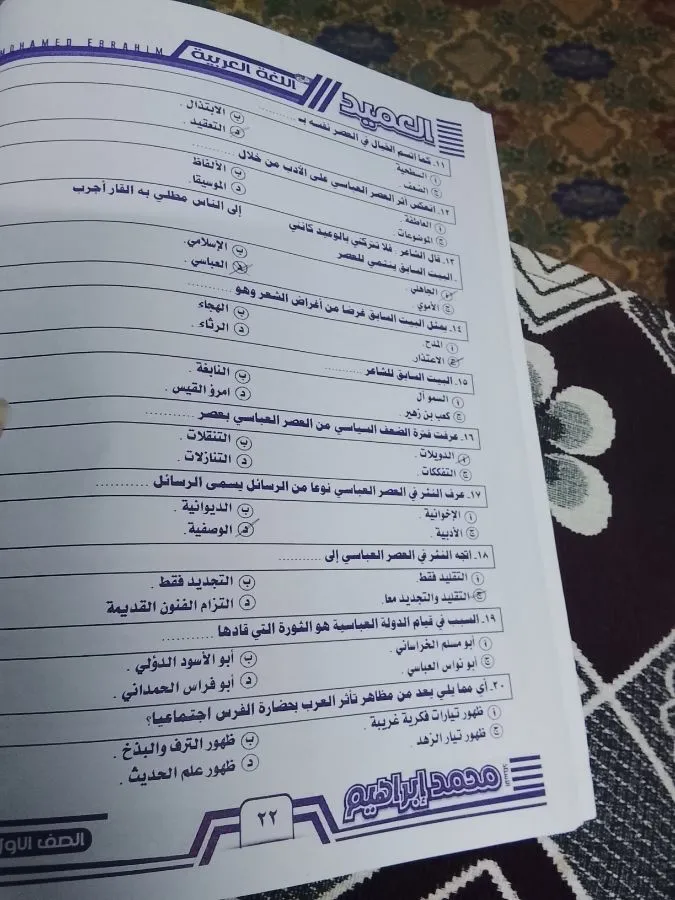 MOHAMED EBRAHIM
اللغة العربية
العميد
١١. كما اتسم الخيال في العصر نفسه بـ ..........
أ السطحية .
ب الابتذال .
ج الضعف .
د التعقيد .
١٢. انعكس أثر العصر العباسي على الأدب من خلال ..........
أ العاطفة .
ب الألفاظ
ج الموضوعات .
د الموسيقا.
١٣. قال الشاعر . فلا تتركني بالوعيد كأنني
إلى الناس مطلي به القار أجرب
. البيت السابق ينتمي للعصر
أ الجاهلي .
ب الإسلامي.
ج الأموي .
د العباسي .
١٤. يمثل البيت السابق غرضا من أغراض الشعر وهو ..........
أ المدح.
ب الهجاء
ج الاعتذار.
د الرثاء .
١٥. البيت السابق للشاعر ..........
أ السمو أل
ب النابغة .
ج كعب بن زهير .
د امرؤ القيس .
١٦. عرفت فترة الضعف السياسي من العصر العباسي بعصر ..........
أ الدويلات .
ب التنقلات .
ج التفككات .
د التنازلات .
١٧. عرف النثر في العصر العباسي نوعا من الرسائل يسمى الرسائل ..........
أ الإخوانية .
ب الديوانية .
ج الأدبية .
د الوصفية .
١٨. اتجه النثر في العصر العباسي إلى ..........
أ التقليد فقط.
ب التجديد فقط .
ج التقليد والتجديد معا.
د التزام الفنون القديمة
١٩. السبب في قيام الدولة العباسية هو الثورة التي قادها ..........
أ أبو مسلم الخراساني .
ب أبو الأسود الدؤلي .
ج أبو نواس العباسي .
د أبو فراس الحمداني .
٢٠. أي مما يلي يعد من مظاهر تأثر العرب بحضارة الفرس اجتماعيا؟
أ ظهور تيارات فكرية غريبة .
ب ظهور الترف والبذخ .
ج ظهور تيار الزهد .
د ظهور علم الحديث .
محمد إبراهيم
٢٢
الصف الأول